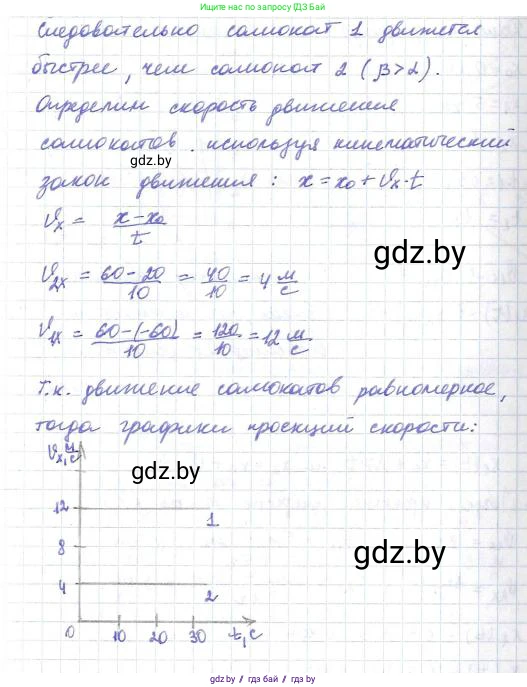 Ищите нас по запросу ГДЗ бай
Следовательно самокат 1 движется
быстрее, чем самокат 2 (β>α).
Определим скорость движения
самокатов, используя кинематический
gdz.by
закон движения: x=x₀+ϑₓ·t
ϑₓ = x-x₀/t
gdz.by
ϑ₂ₓ = 60-20/10 = 40/10 = 4 м/с
ϑ₁ₓ = 60-(-60)/10 = 120/10 = 12 м/с
Т.к. движение самокатов равномерное,
тогда графики проекций скорости:
ϑₓ, м/с
gdz.by
12
1
8
gdz.by
4
2
0 10 20 30 t, с
gdz.by / гдз бай / гдз.бел